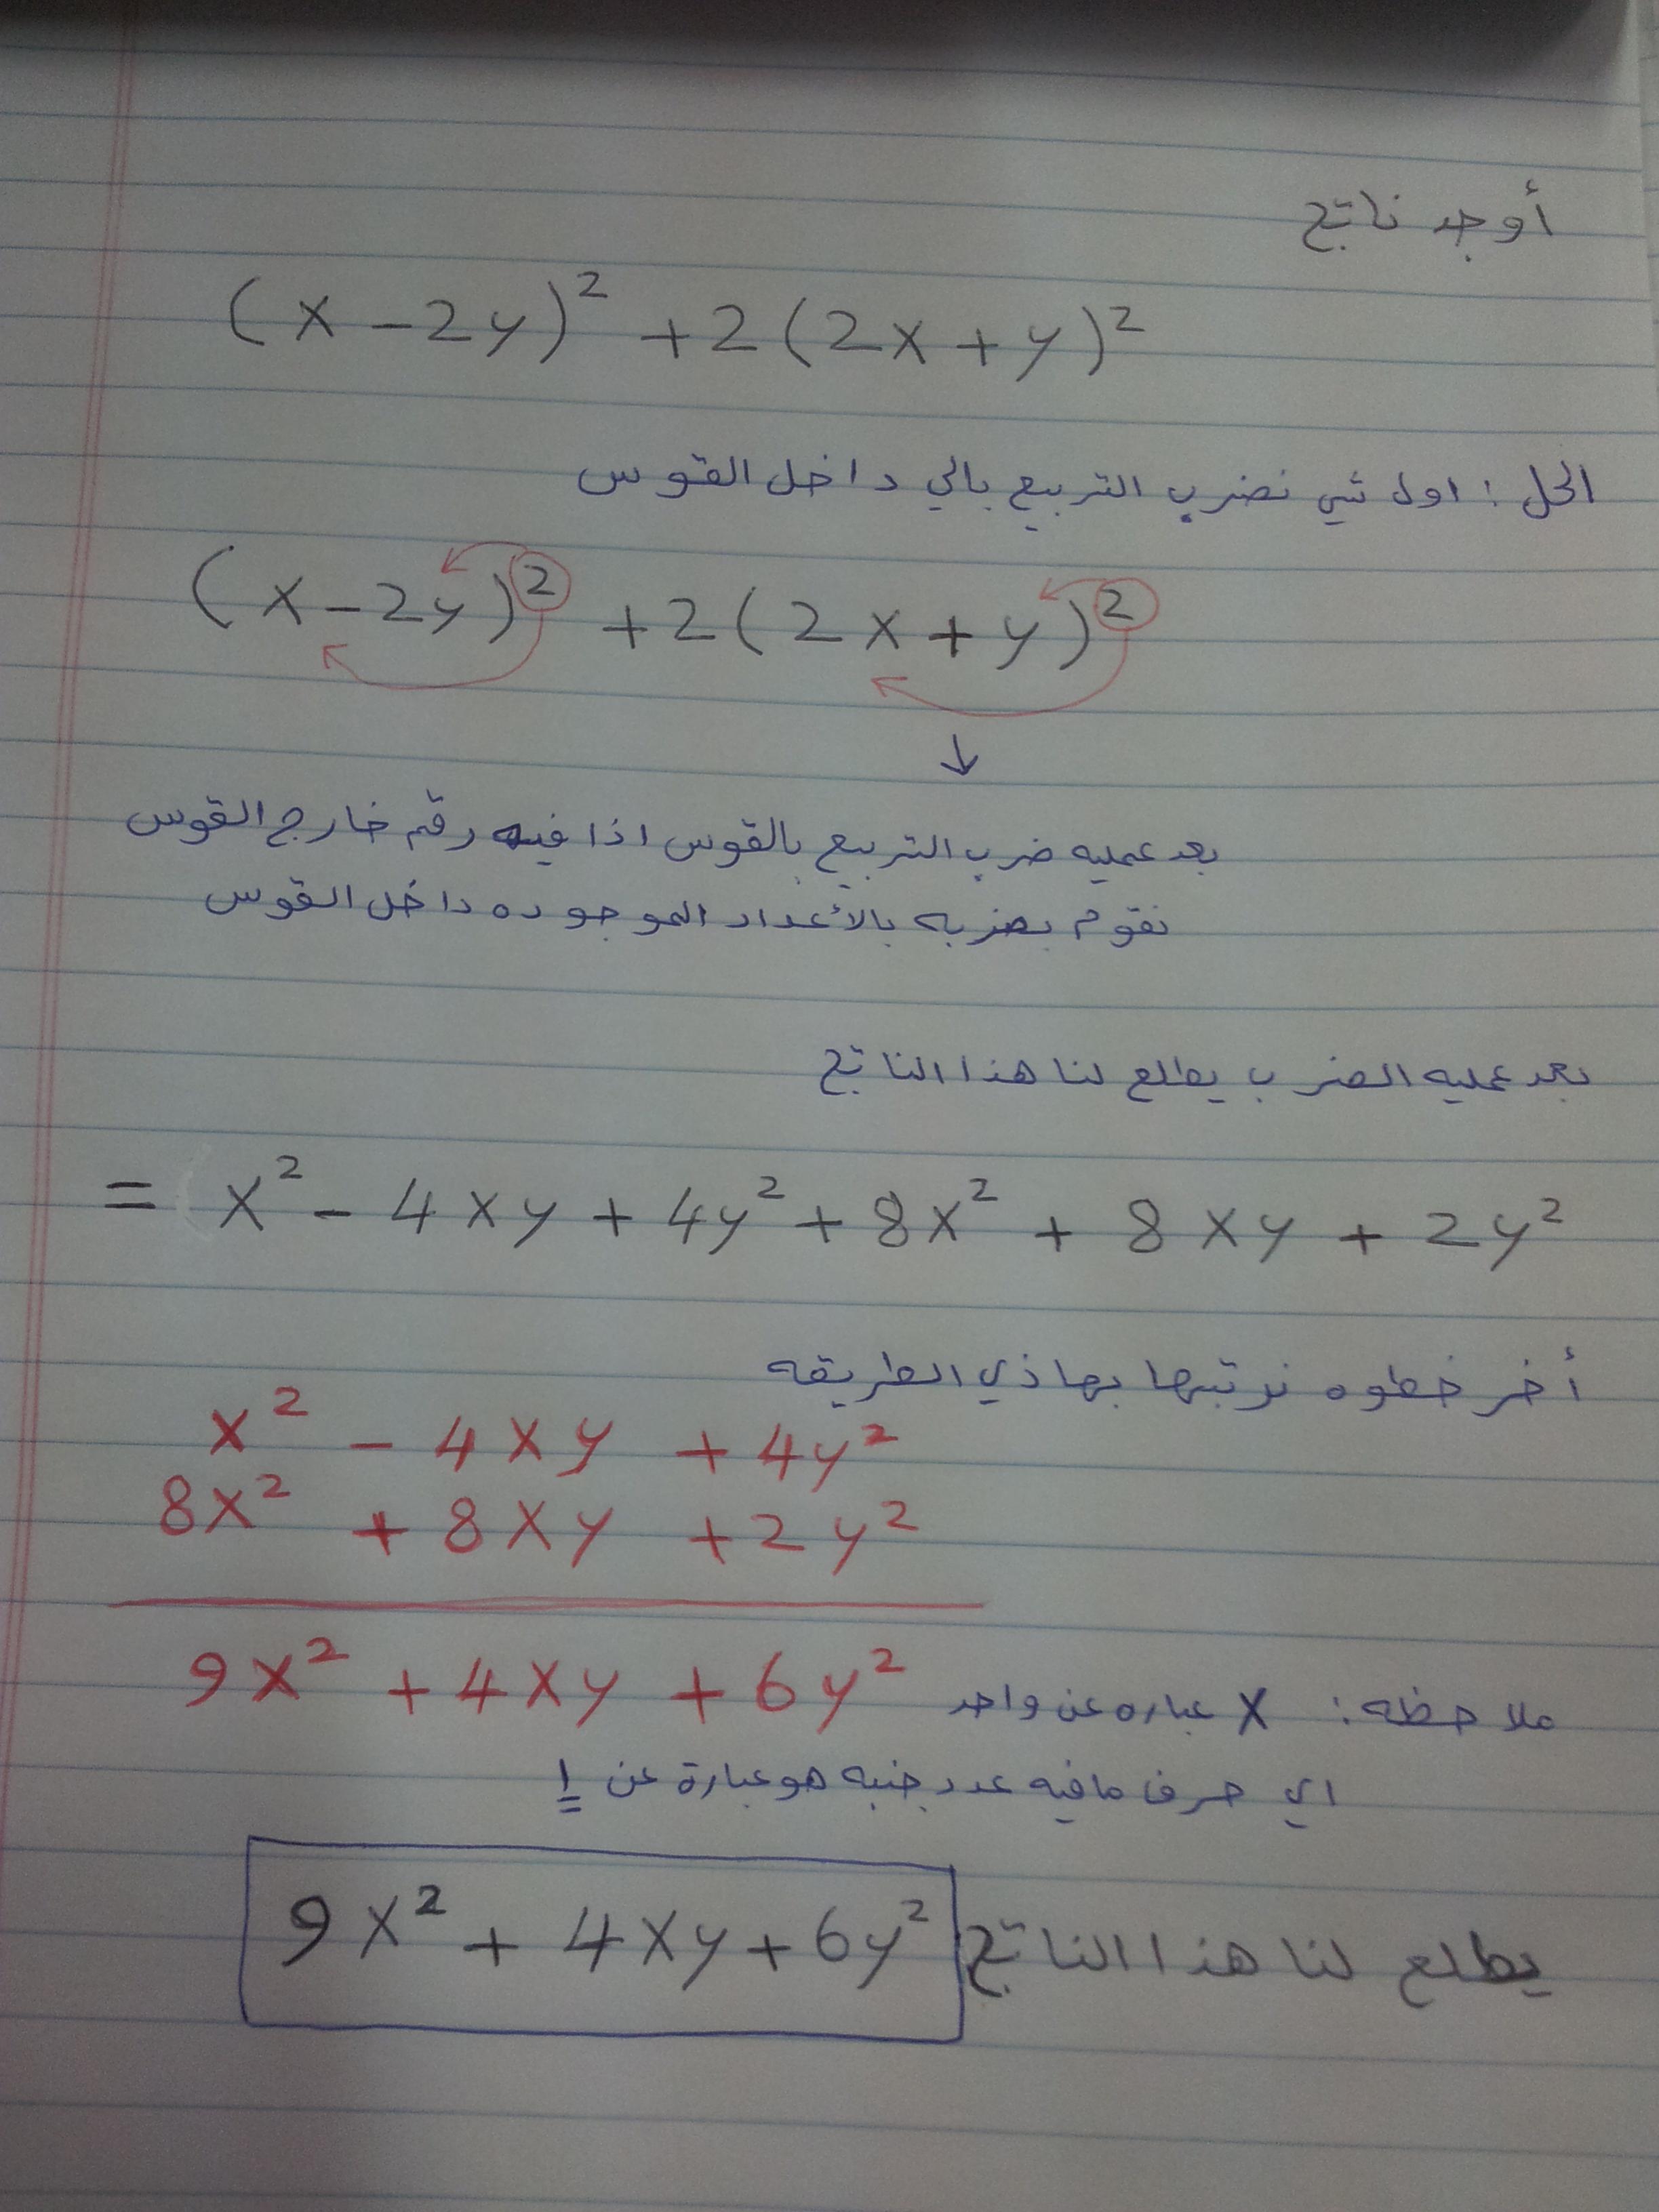 أوجد ناتج
(x - 2y)² + 2(2x + y)²
الحل : اول شي نضرب التربيع بالي داخل القوس
(x - 2y)² + 2(2x + y)²
↓
بعد عمليه ضرب التربيع بالقوس اذا فيه رقم خارج القوس
نقوم بضربه بالأعداد الموجوده داخل القوس
بعد عمليه الضرب يطلع لنا هذا الناتج
= x² - 4xy + 4y² + 8x² + 8xy + 2y²
أخر خطوه نرتبها بهاذي الطريقه
x² - 4xy + 4y²
8x² + 8xy + 2y²
9x² + 4xy + 6y²
ملاحظه : x عباره عن واحد
اي حرف مافيه عدد جنبه هو عبارة عن 1
يطلع لنا هذا الناتج 9x² + 4xy + 6y²